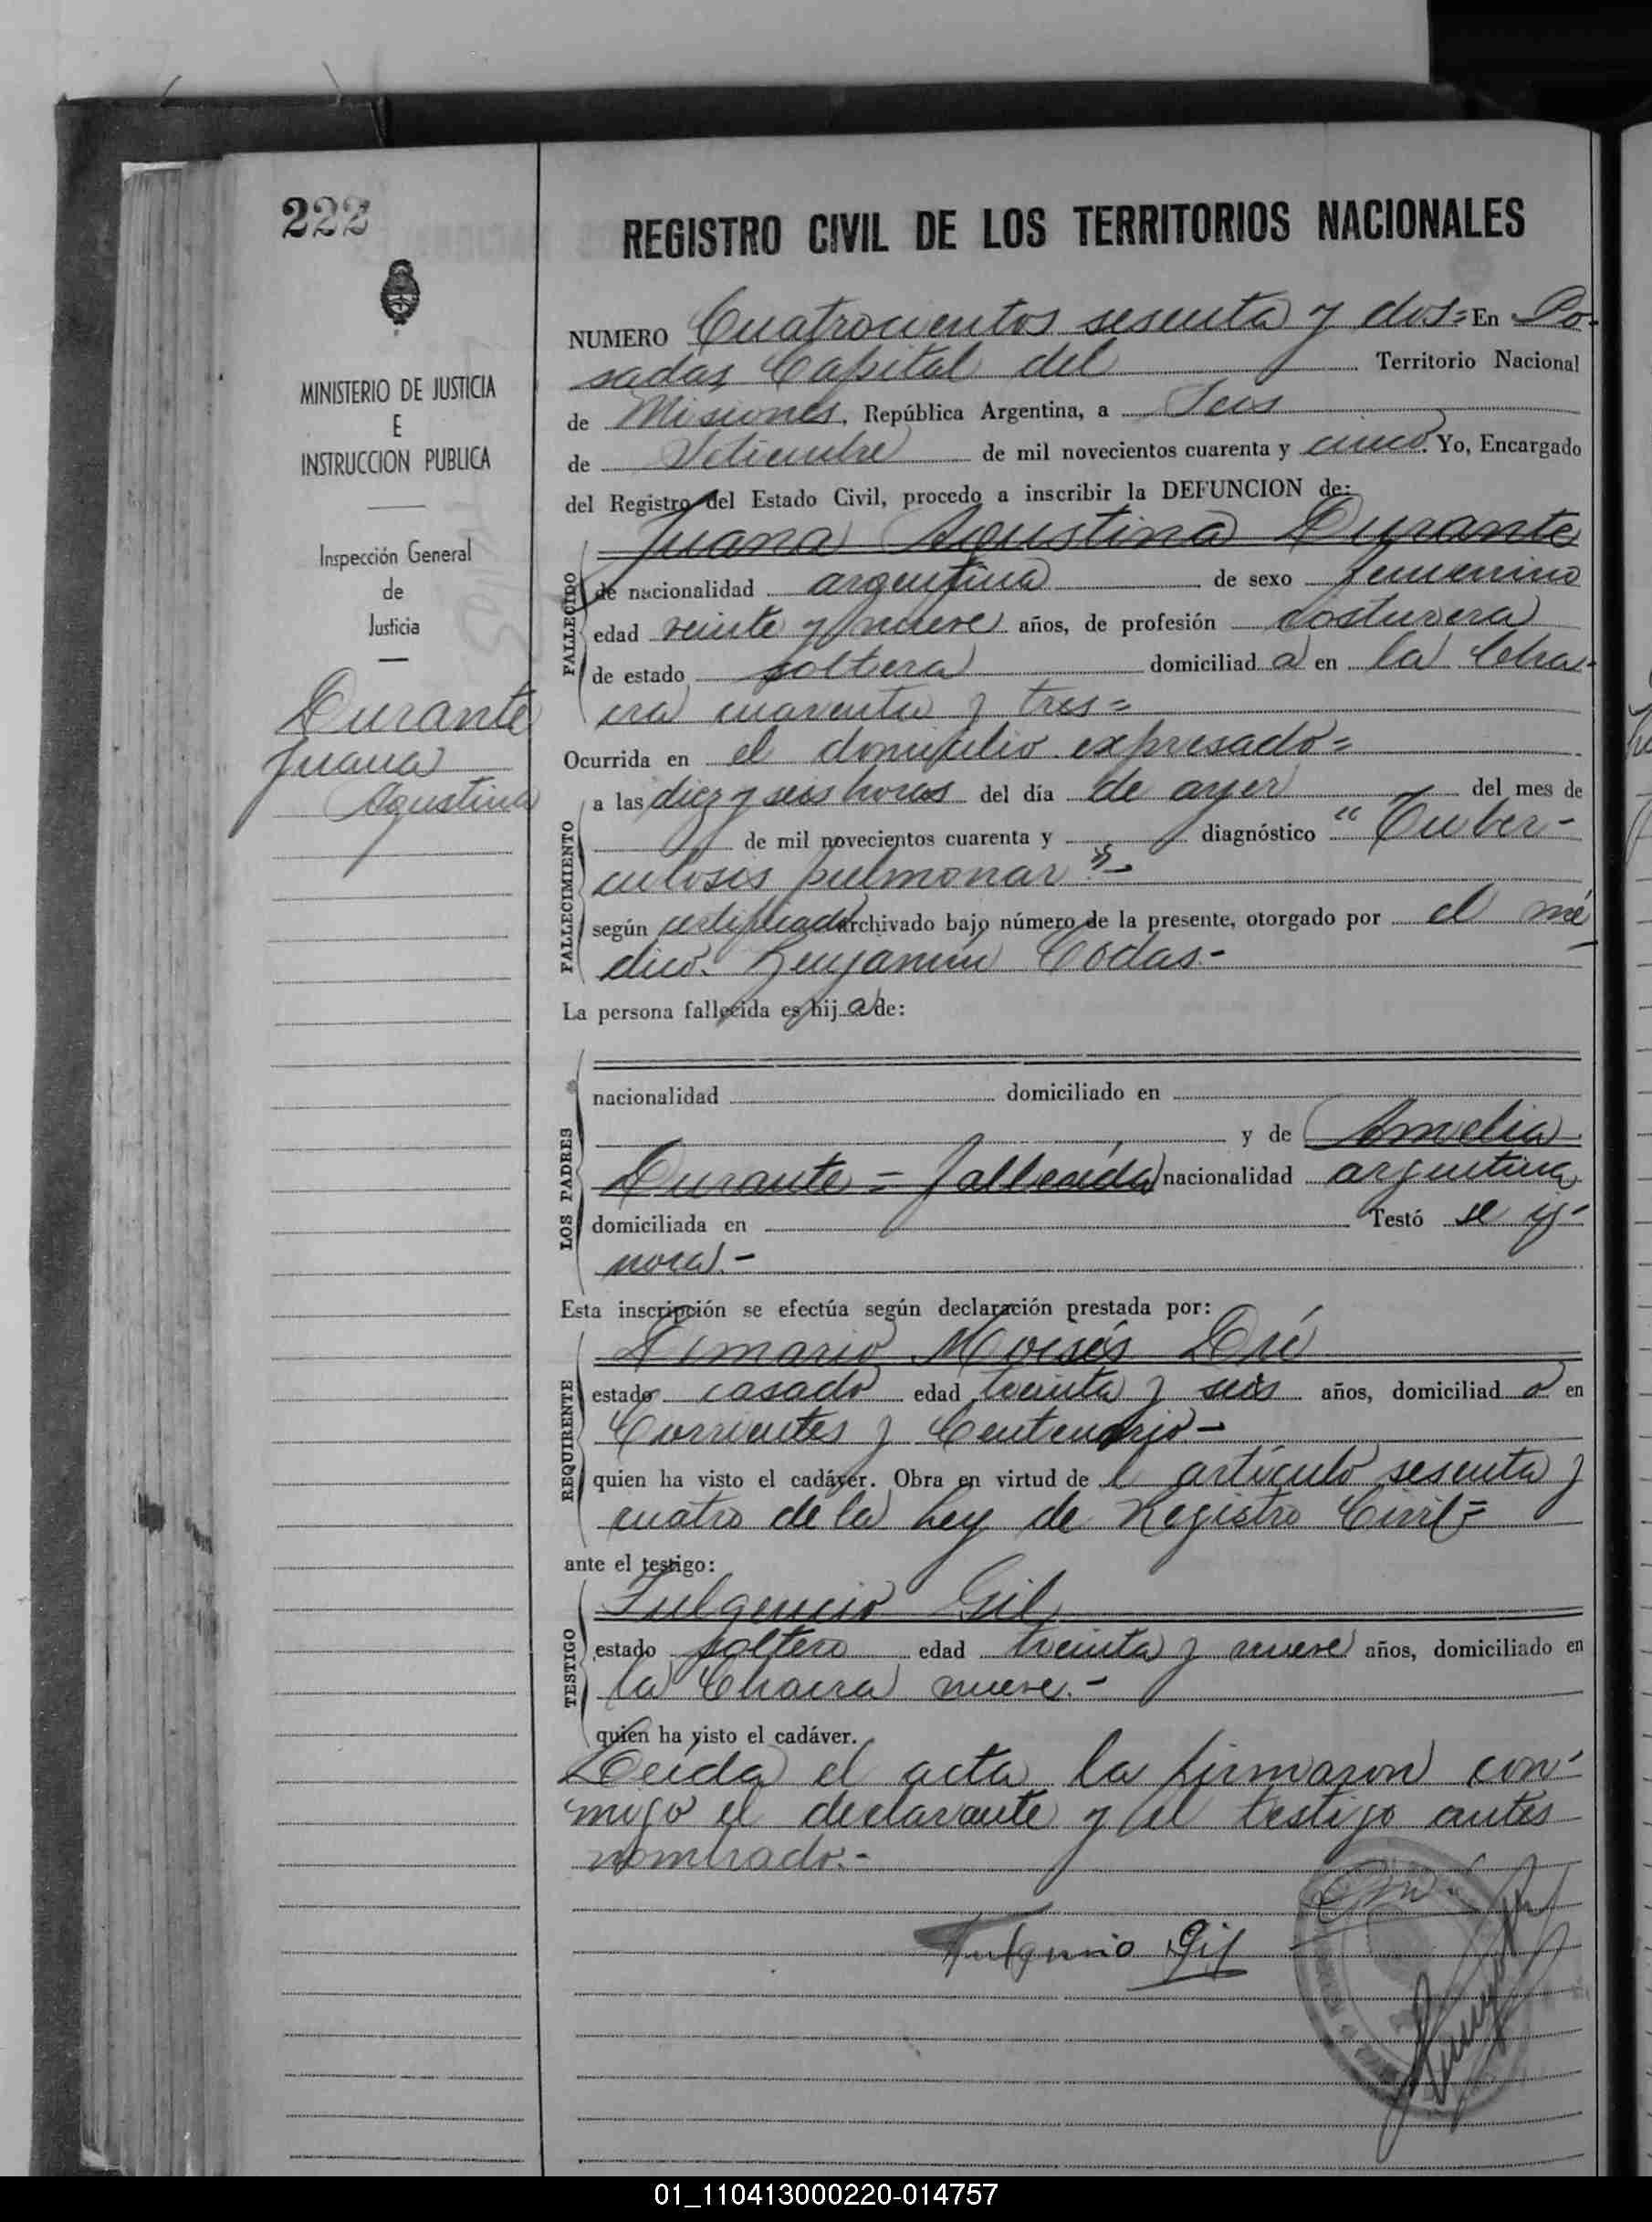 222
REGISTRO CIVIL DE LOS TERRITORIOS NACIONALES
MINISTERIO DE JUSTICIA
E
INSTRUCCION PUBLICA
Inspección General
de
Justicia
Durante
Juana
Agustina
NUMERO Cuatrocientos sesenta y dos= En Po-
sadas Capital del Territorio Nacional
de Misiones, República Argentina, a Seis
de Setiembre de mil novecientos cuarenta y cinco. Yo, Encargado
del Registro del Estado Civil, procedo a inscribir la DEFUNCION de:
FALLECIDO
Juana Agustina Durante
de nacionalidad argentina de sexo femenino
edad veinte y nueve años, de profesión costurera
de estado soltera domiciliad a en la Cha-
cra cuarenta y tres=
Ocurrida en el domicilio expresado=
FALLECIMIENTO
a las diez y seis horas del día de ayer del mes de
de mil novecientos cuarenta y diagnóstico "Tuber-
culosis pulmonar"-
según certificado archivado bajo número de la presente, otorgado por el mé
dico Benjamin Codas.-
La persona fallecida es hij a de:
LOS PADRES
nacionalidad domiciliado en
y de Amelia
Durante = fallecida nacionalidad argentina
domiciliada en Testó se ig-
nora.-
Esta inscripción se efectúa según declaración prestada por:
REQUIRENTE
Moisés
estado casado edad treinta y seis años, domiciliad o en
Corrientes y Centenario-
quien ha visto el cadáver. Obra en virtud de l artículo sesenta y
cuatro de la Ley de Registro Civil=
ante el testigo:
TESTIGO
Fulgencio Gil
estado soltero edad treinta y nueve años, domiciliado en
la Chacra nueve.-
quien ha visto el cadáver.
Leída el acta la firmaron con-
migo el declarante y el testigo antes
nombrado.-
Fulgencio Gil
01_110413000220-014757